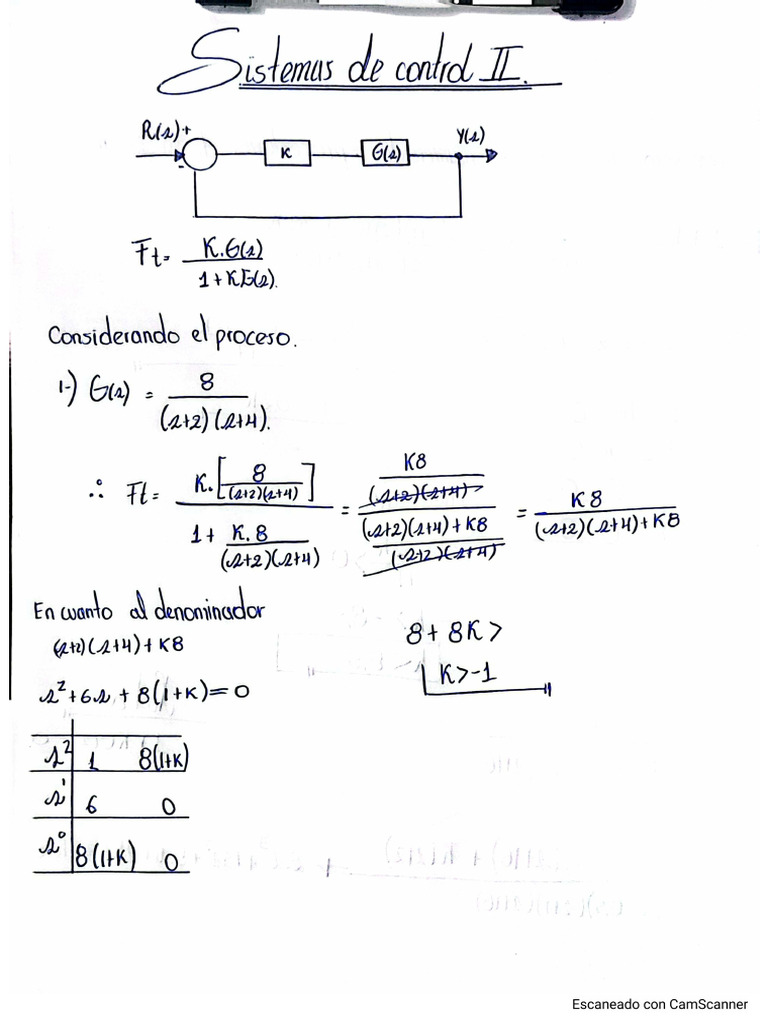 Sistemas de control II.
R(s) + - K G(s) Y(s)
Ft = K.G(s) / 1 + KG(s).
Considerando el proceso.
1-) G(s) = 8 / (s+2)(s+4).
∴ Ft = K.[8 / (s+2)(s+4)] / 1 + K.8 / (s+2)(s+4) = K8 / (s+2)(s+4) / (s+2)(s+4) + K8 / (s+2)(s+4) = K8 / (s+2)(s+4) + K8
En cuanto al denominador
(s+2)(s+4) + K8
s² + 6s + 8(1+K) = 0
8 + 8K >
K > -1
s² 1 8(1+K)
s¹ 6 0
s⁰ 8(1+K) 0
Escaneado con CamScanner